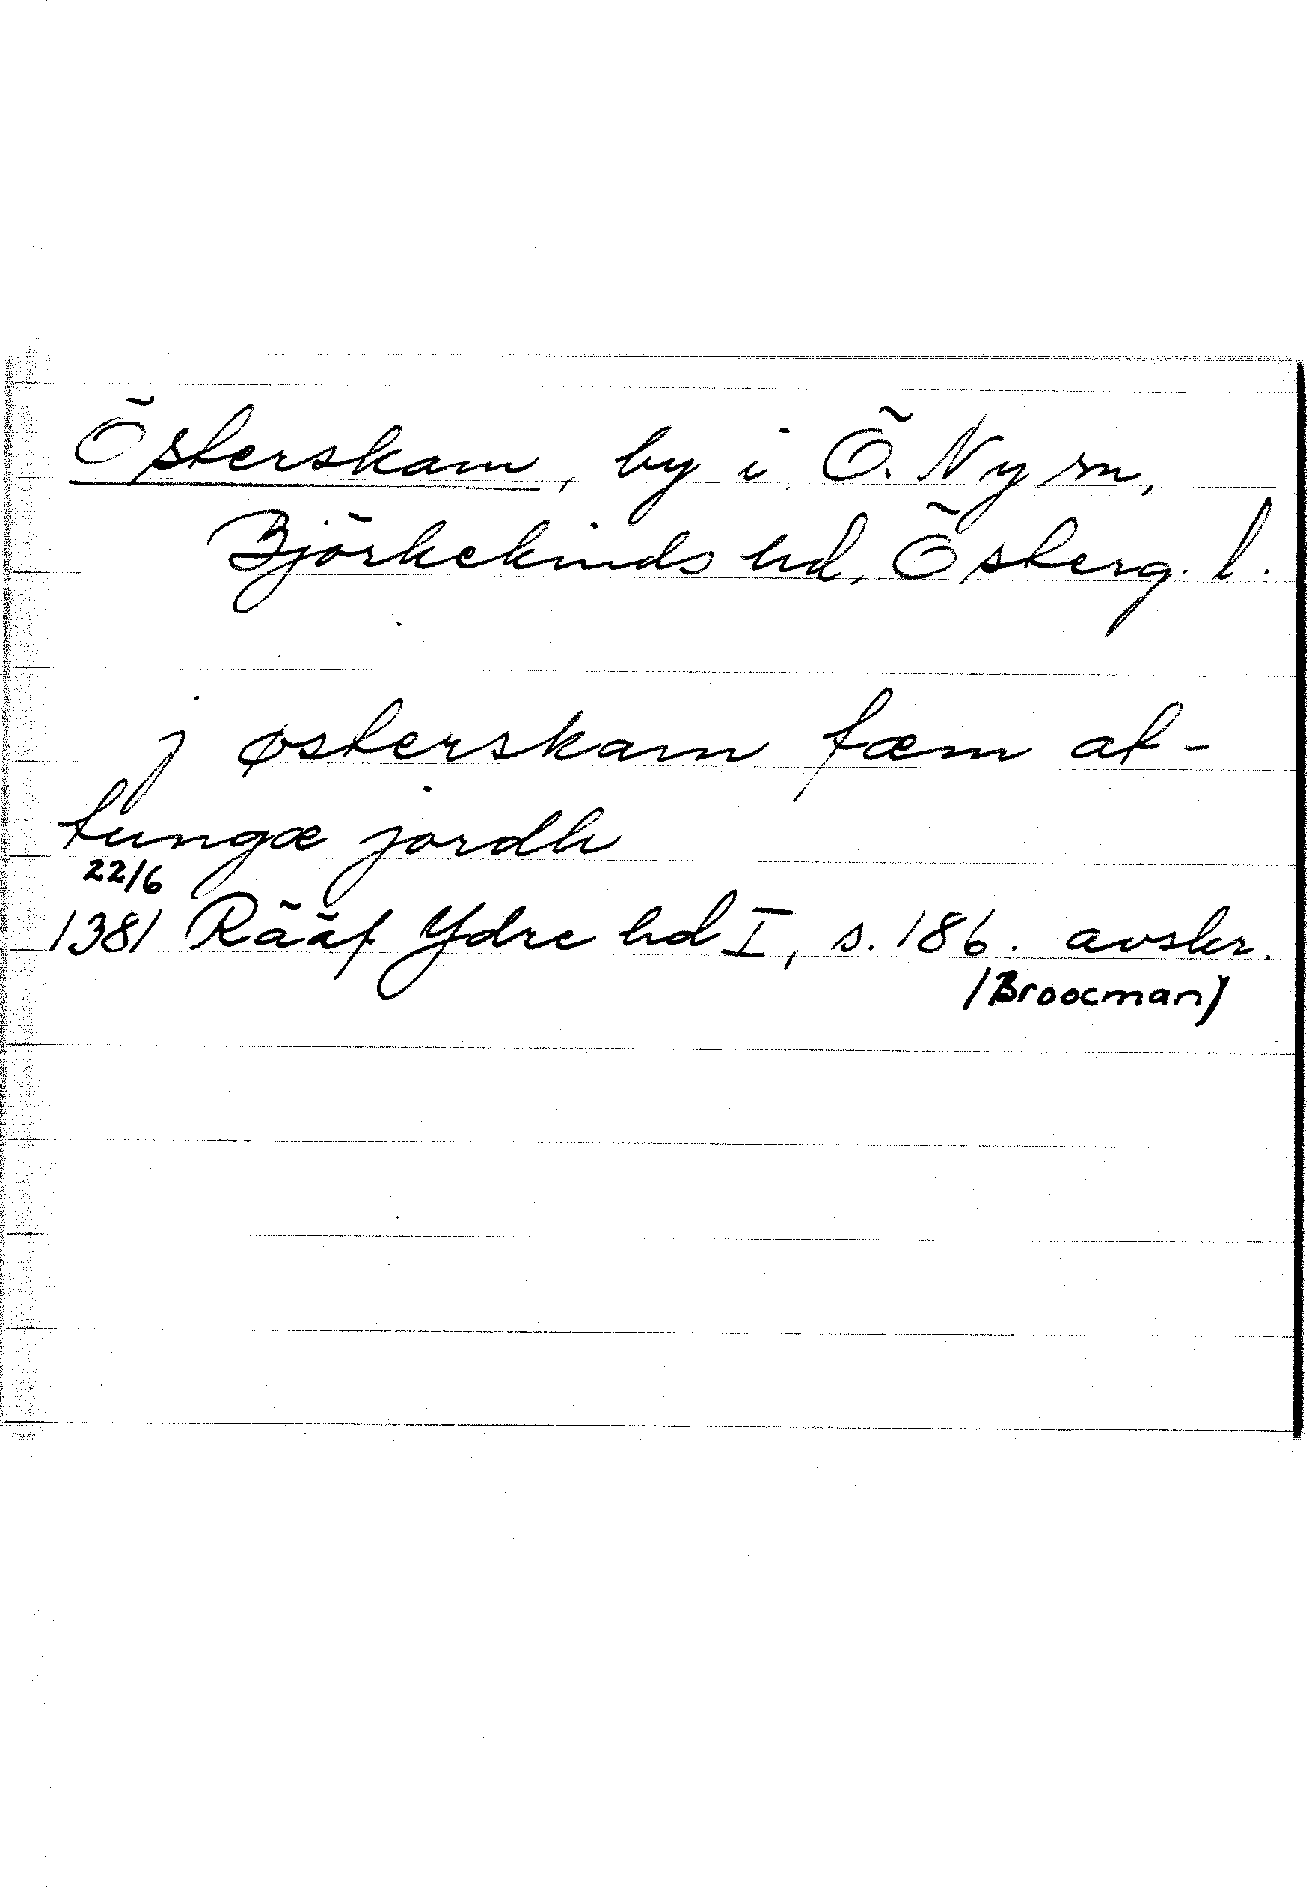 Österskam, by i Ö. Ny sn,
Björkekinds hd, Österg. l.
j østerskam fæm at-
tungæ jordh
22/6
1381 Rääf Ydre hd I, s. 186. avskr.
/Broocman/